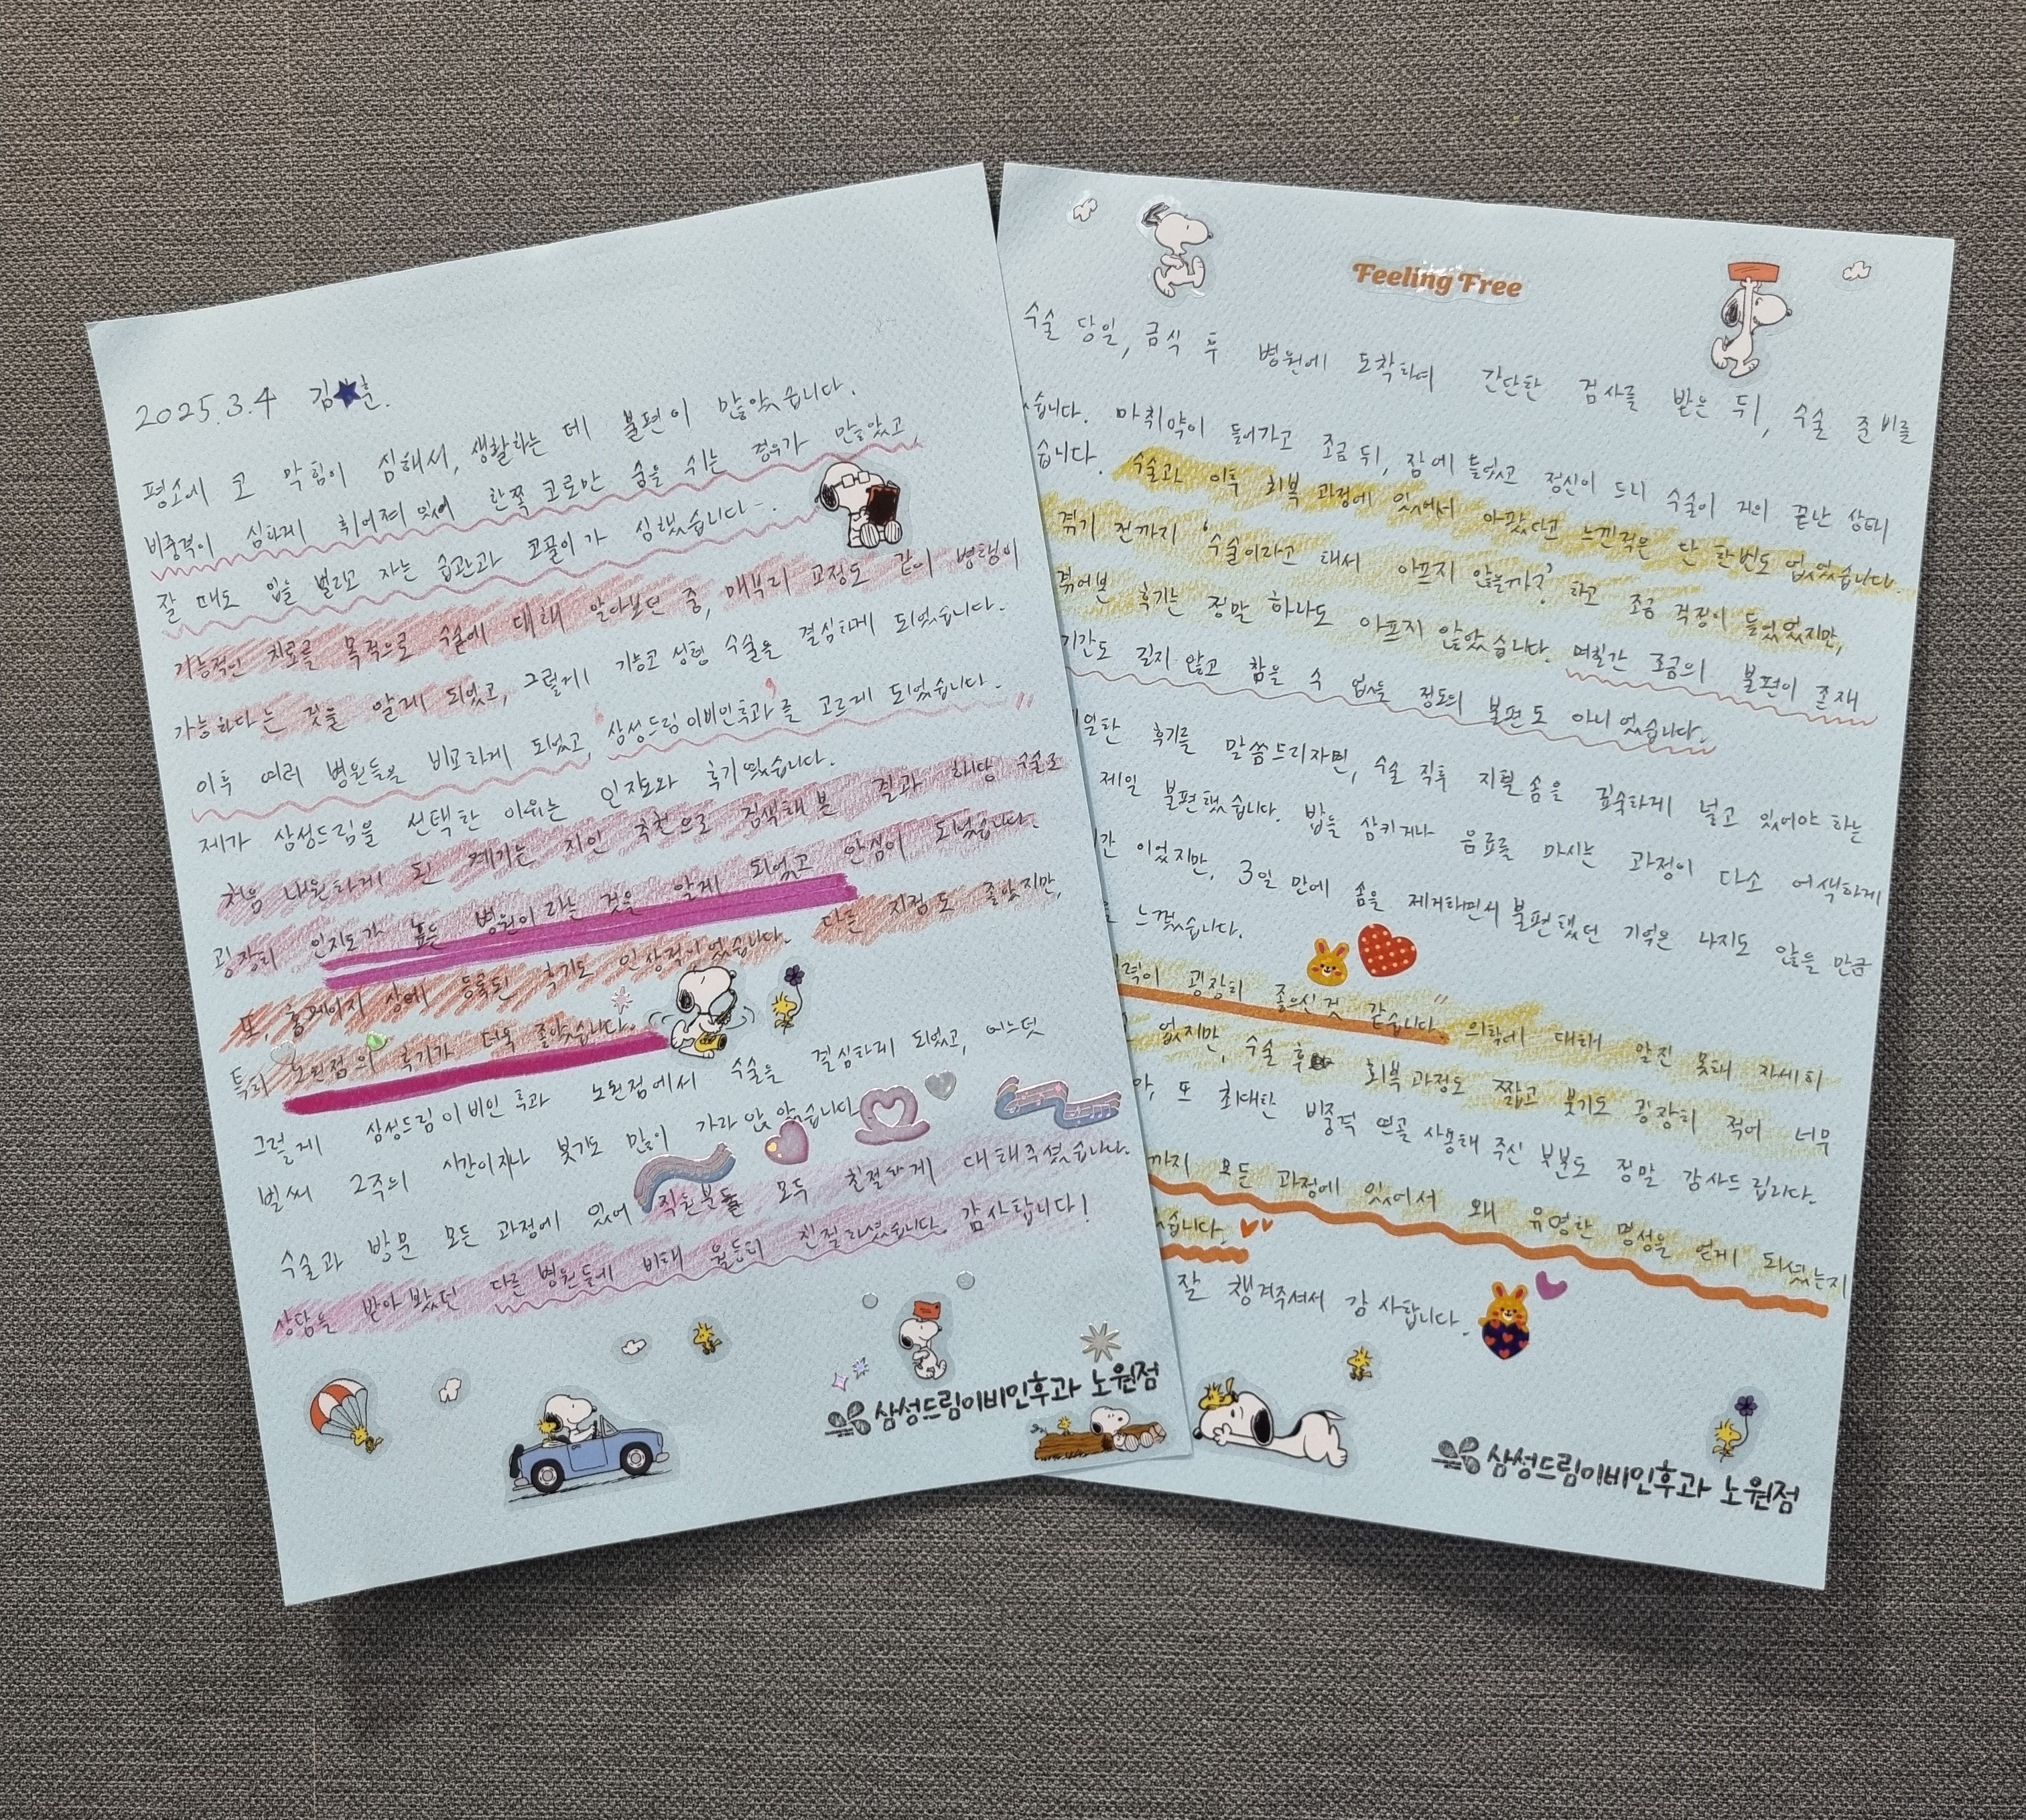 2025.3.4 김★훈.
평소에 코 막힘이 심해서, 생활하는 데 불편이 많았습니다.
비중격이 심하게 휘어져 있어 한쪽 코로만 숨을 쉬는 경우가 많았고
잘 때도 입을 벌리고 자는 습관과 코골이가 심했습니다.
기능적인 치료를 목적으로 수술에 대해 알아보던 중, 매부리 교정도 같이 병행이
가능하다는 것을 알게 되었고, 그렇게 기능코 성형 수술을 결심하게 되었습니다.
이후 여러 병원들을 비교하게 되었고, 삼성드림이비인후과를 고르게 되었습니다.
제가 삼성드림을 선택한 이유는 인지도와 후기였습니다.
처음 내원하게 된 계기는 지인 추천으로 검색해 본 결과 해당 수술로
굉장히 인지도가 높은 병원이라는 것을 알게 되었고 안심이 되었습니다.
또, 홈페이지 상에 등록된 후기도 인상적이었습니다. 다른 지점도 좋았지만,
특히 노원점의 후기가 더욱 좋았습니다.
그렇게 삼성드림이비인후과 노원점에서 수술을 결심하게 되었고, 어느덧
벌써 2주의 시간이 지나 붓기도 많이 가라앉았습니다
수술과 방문 모든 과정에 있어 직원분들 모두 친절하게 대해주셨습니다.
상담을 받아 봤던 다른 병원들에 비해 월등히 친절하셨습니다. 감사합니다!
삼성드림이비인후과 노원점
Feeling Free
수술 당일, 금식 후 병원에 도착하여 간단한 검사를 받은 뒤, 수술 준비를
습니다. 마취약이 들어가고 조금 뒤, 잠에 들었고 정신이 드니 수술이 거의 끝난 상태
습니다. 수술과 이후 회복 과정에 있어서 아팠다고 느낀적은 단 한번도 없었습니다.
겪기 전까지 '수술이라고 해서 아프지 않을까?' 하고 조금 걱정이 들었었지만,
겪어본 후기는 정말 하나도 아프지 않았습니다. 며칠간 조금의 불편이 존재
기간도 길지 않고 참을 수 없을 정도의 불편도 아니었습니다.
일한 후기를 말씀드리자면, 수술 직후 지혈 솜을 깊숙하게 넣고 있어야 하는
제일 불편했습니다. 밥을 삼키거나 음료를 마시는 과정이 다소 어색하게
간 이었지만, 3일 만에 솜을 제거하면서 불편했던 기억은 나지도 않을 만큼
느꼈습니다.
력이 굉장히 좋으신 것 같습니다. 의학에 대해 알진 못해 자세히
없지만, 수술 후 회복 과정도 짧고 붓기도 굉장히 적어 너무
또 최대한 비중격 연골 사용해 주신 부분도 정말 감사드립니다.
까지 모든 과정에 있어서 왜 유명한 명성을 얻게 되셨는지
습니다.
잘 챙겨주셔서 감사합니다.
삼성드림이비인후과 노원점